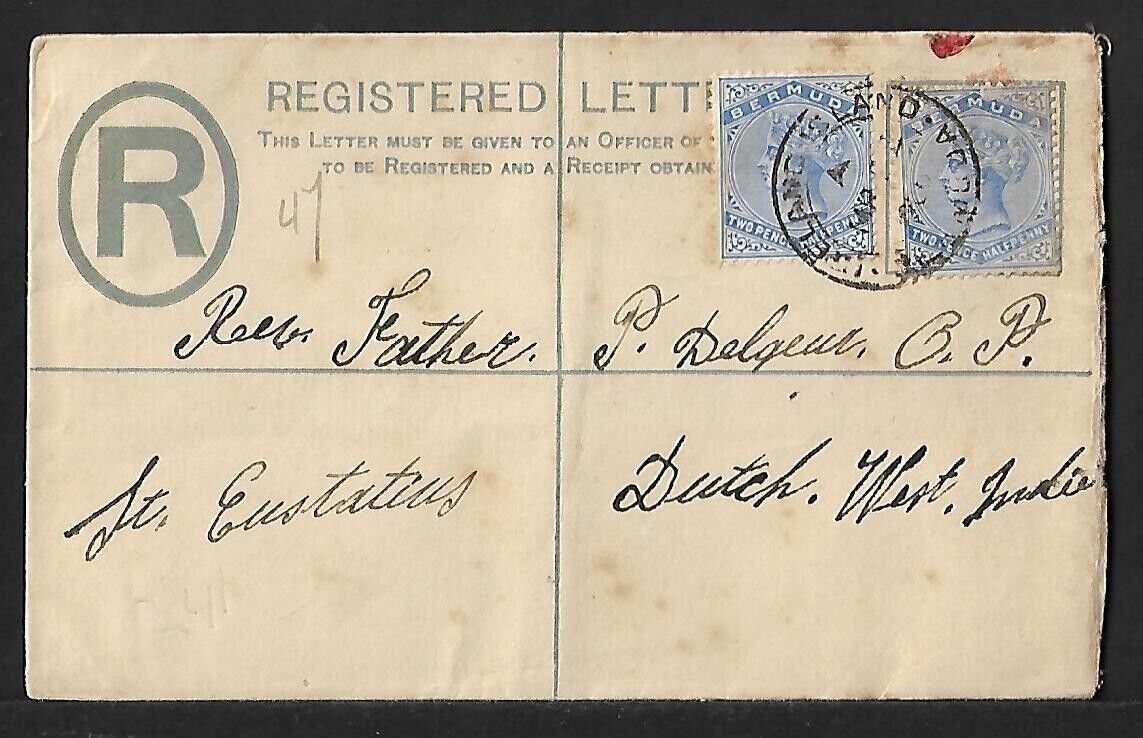 REGISTERED LETT
THIS LETTER MUST BE GIVEN TO AN OFFICER OF
TO BE REGISTERED AND A RECEIPT OBTAIN
R
BERMUDA
TWO PENCE PENNY
BERMUDA
TWO PENCE HALFPENNY
47
Rev. Father. P. Delgeur. O. P.
St. Eustatius
Dutch. West. Indie